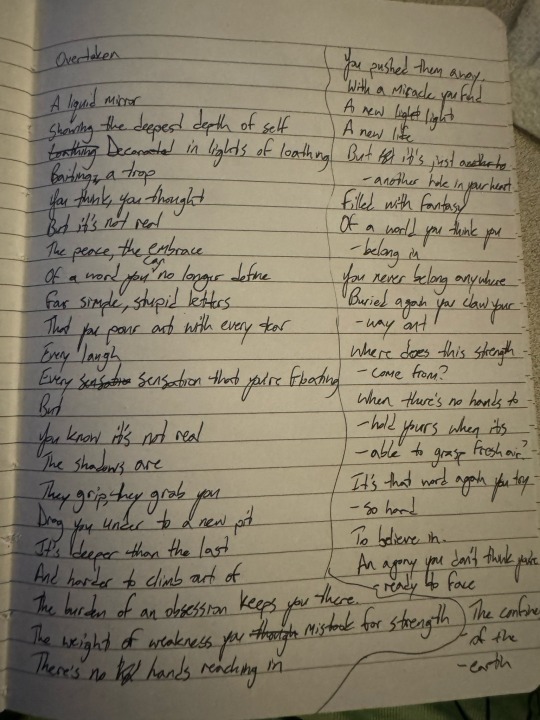 Overtaken
A liquid mirror
showing the deepest depth of self
Loathing Decorated in lights of loathing
Baiting, a trap
You think, you thought
But it's not real
The peace, the embrace
Of a word you can no longer define
Four simple, stupid letters
That you pour out with every tear
Every laugh
Every sensation sensation that you're floating
But
you know it's not real
The shadows are
They grip, they grab you
Drag you under to a new pit
It's deeper than the last
And harder to climb out of
The burden of an obsession keeps you there.
The weight of weakness you though mistook for strength
There's no hands reaching in
You pushed them away
With a miracle you find
A new light light
A new life
But it's just
- another hole in your heart
Filled with fantasy
Of a world you think you
- belong in
You never belong anywhere
Buried again you claw your
- way out
Where does this strength
- come from?
When there's no hands to
- hold yours when its
- able to grasp fresh air?
It's that word again you try
- so hard
To believe in.
An agony you don't think you're
ready to face
The confine
- of the
- earth